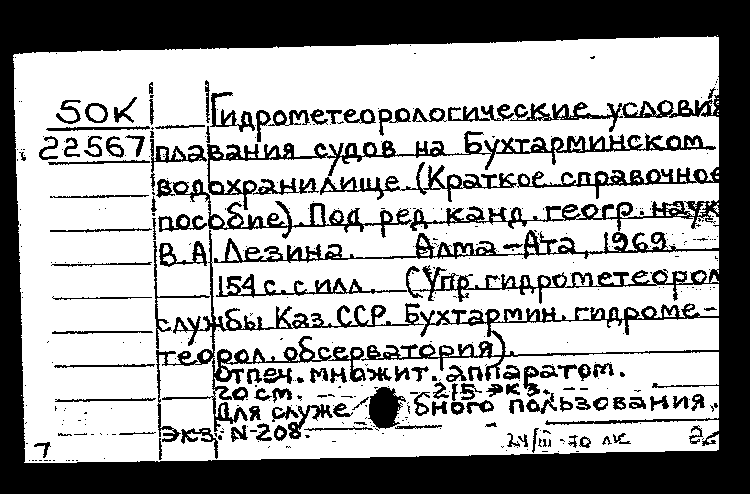 50К
22567
Гидрометеорологические условия
плавания судов на Бухтарминском
водохранилище (Краткое справочное
пособие). Под ред. канд. геогр. наук
В.А. Лезина. Алма-Ата, 1969.
154 с. с илл. (Упр. гидрометеорол
службы Каз. ССР. Бухтармин. гидроме-
теорол. обсерватория).
Отпеч. множит. аппаратом.
20 см. 215 экз.
Для служебного пользования.
экз. N-208.
7 24/III-70 лк